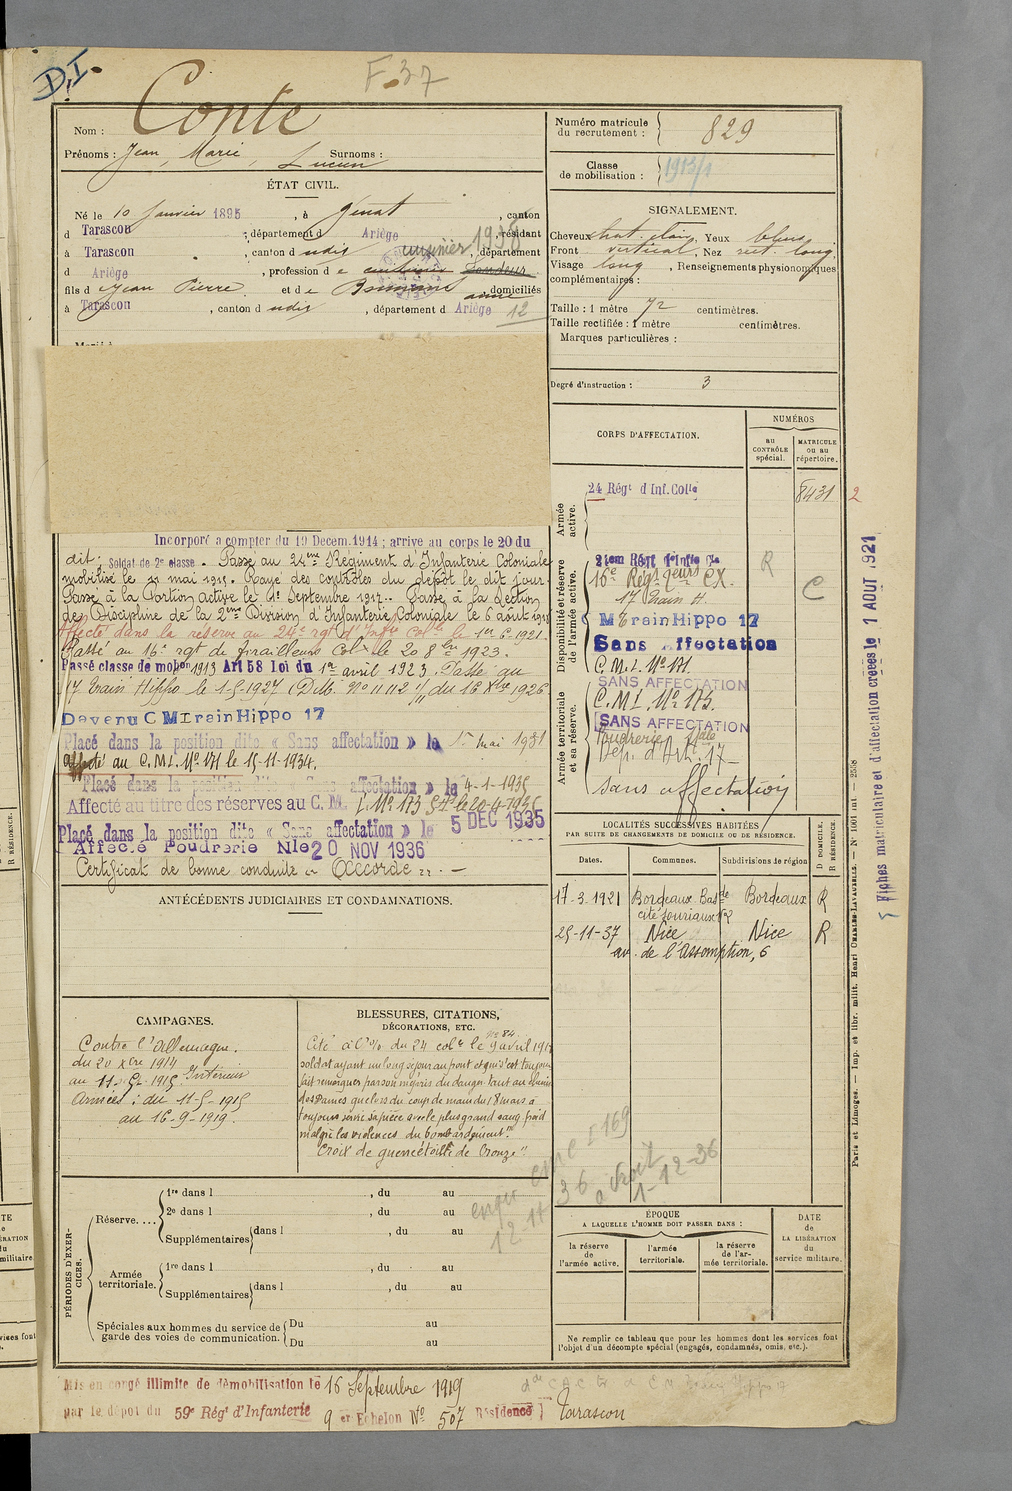 D.I.
F. 37
Nom : Conte
Prénoms : Jean, Marie, Lucien Surnoms :
ÉTAT CIVIL.
Né le 10 Janvier 1895, à Génat, canton
d Tarascon, département d Ariège, résidant
à Tarascon, canton d udis, département
d Ariège, profession d e
fils d e Jean Pierre et d e domiciliés
à Tarascon, canton d udis, département d Ariège 12
Numéro matricule
du recrutement : 829
Classe
de mobilisation : 1913/1
SIGNALEMENT.
Cheveux chat. clair, Yeux bleus
Front vertical, Nez rect. long
Visage long, Renseignements physionomiques
complémentaires :
Taille : 1 mètre 72 centimètres.
Taille rectifiée : 1 mètre centimètres.
Marques particulières :
Degré d'instruction : 3
Incorporé a compter du 19 Decem.1914 ; arrive au corps le 20 du
dit ; Soldat de 2e classe. Passé au 24eme Régiment d'Infanterie Coloniale
mobilisé le 11 mai 1915. Rayé des contrôles du dépôt le dit jour.
Passé à la Portion active le 1er Septembre 1917. Passé à la Section
de Discipline de la 2eme Division d'Infanterie Coloniale le 6 août 1918
Affecté dans la réserve au 24e rgt d'Infie Colle le 1er 6 1921.
Passé au 16e rgt de tirailleurs Colx le 20 8bre 1923.
Passé classe de mobon 1913 Art 58 loi du 1er avril 1923. Passé au
17 Train Hippo le 1-5-1927 (D.M. No 11112 1/11 du 16 Xbre 1926
Devenu C M Train Hippo 17
Placé dans la position dite « Sans affectation » le 15 mai 1931
affecté au C.M.I. No 171 le 15-11-1934.
Placé dans la position dite « Sans affectation » le 4-1-1935
Affecté au titre des réserves au C. M. I. No 173 le 20-4-1935
Placé dans la position dite « Sans affectation » le 5 DEC 1935
Affecté Poudrerie Nle 20 NOV 1936
Certificat de bonne conduite « Accordé ».
CORPS D'AFFECTATION.
NUMÉROS
au
CONTRÔLE
spécial.
MATRICULE
ou au
répertoire.
Armée
active.
24 Régt d Inf.Colle
8431 2
Disponibilité et réserve
de l'armée active.
24em Régt d'Infie Cle
16e Régt
17 Train H.
R
C
M Train Hippo 17
Sans Affectation
C.M.I. No 171
SANS AFFECTATION
Armée territoriale
et sa réserve.
C.M.I. No 173.
SANS AFFECTATION
Poudrerie Nale
Dép. d'Art. 17
sans affectation
Fiches matriculaire et d'affectation créées le 1 AOUT 1921
LOCALITÉS SUCCESSIVES HABITÉES
PAR SUITE DE CHANGEMENTS DE DOMICILE OU DE RÉSIDENCE.
Dates. Communes. Subdivisions de région
D DOMICILE.
R RÉSIDENCE.
17-3-1921 Bordeaux Bordeaux R
25-11-37 Nice Nice R
av. de l'Assomption, 6
ANTÉCÉDENTS JUDICIAIRES ET CONDAMNATIONS.
CAMPAGNES.
Contre l'Allemagne.
du 20 Xbre 1914
au 11-5-1915 Intérieur
Armées : du 11-5-1915
au 16-9-1919.
BLESSURES, CITATIONS,
DÉCORATIONS, ETC.
No 84
Cité à l'O/ du 24 colal le 9 avril 1917
soldat ayant un long séjour au front et qui s'est toujours
fait remarquer par son mépris du danger tant au chemin
des Dames que lors du coup de main du 18 mars a
toujours servi sa pièce avec le plus grand sang froid
malgré les violences du bombardement".
Croix de guerre étoile de bronze"
1-12-36
PÉRIODES D'EXER-
CICES.
Réserve....
1re dans l , du au
2e dans l , du au
Supplémentaires dans l , du au
Armée
territoriale.
1re dans l , du au
Supplémentaires dans l , du au
Spéciales aux hommes du service de
garde des voies de communication.
Du au
Du au
ÉPOQUE
A LAQUELLE L'HOMME DOIT PASSER DANS :
la réserve
de
l'armée active.
l'armée
territoriale.
la réserve
de l'ar-
mée territoriale.
DATE
de
LA LIBÉRATION
du
service militaire.
Ne remplir ce tableau que pour les hommes dont les services font
l'objet d'un décompte spécial (engagés, condamnés, omis, etc.).
Paris et Limoges. — Imp. et libr. milit. Henri CHARLES-LAVAUZELLE. — No 1001 int — 2508
Mis en congé illimité de démobilisation le 16 Septembre 1919
par le dépôt du 59e Rég' d'Infanterie 9 er Echelon No 507 Résidence Tarascon